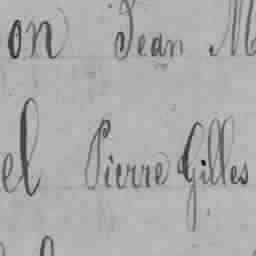 on Jean M
el Pierre Gilles